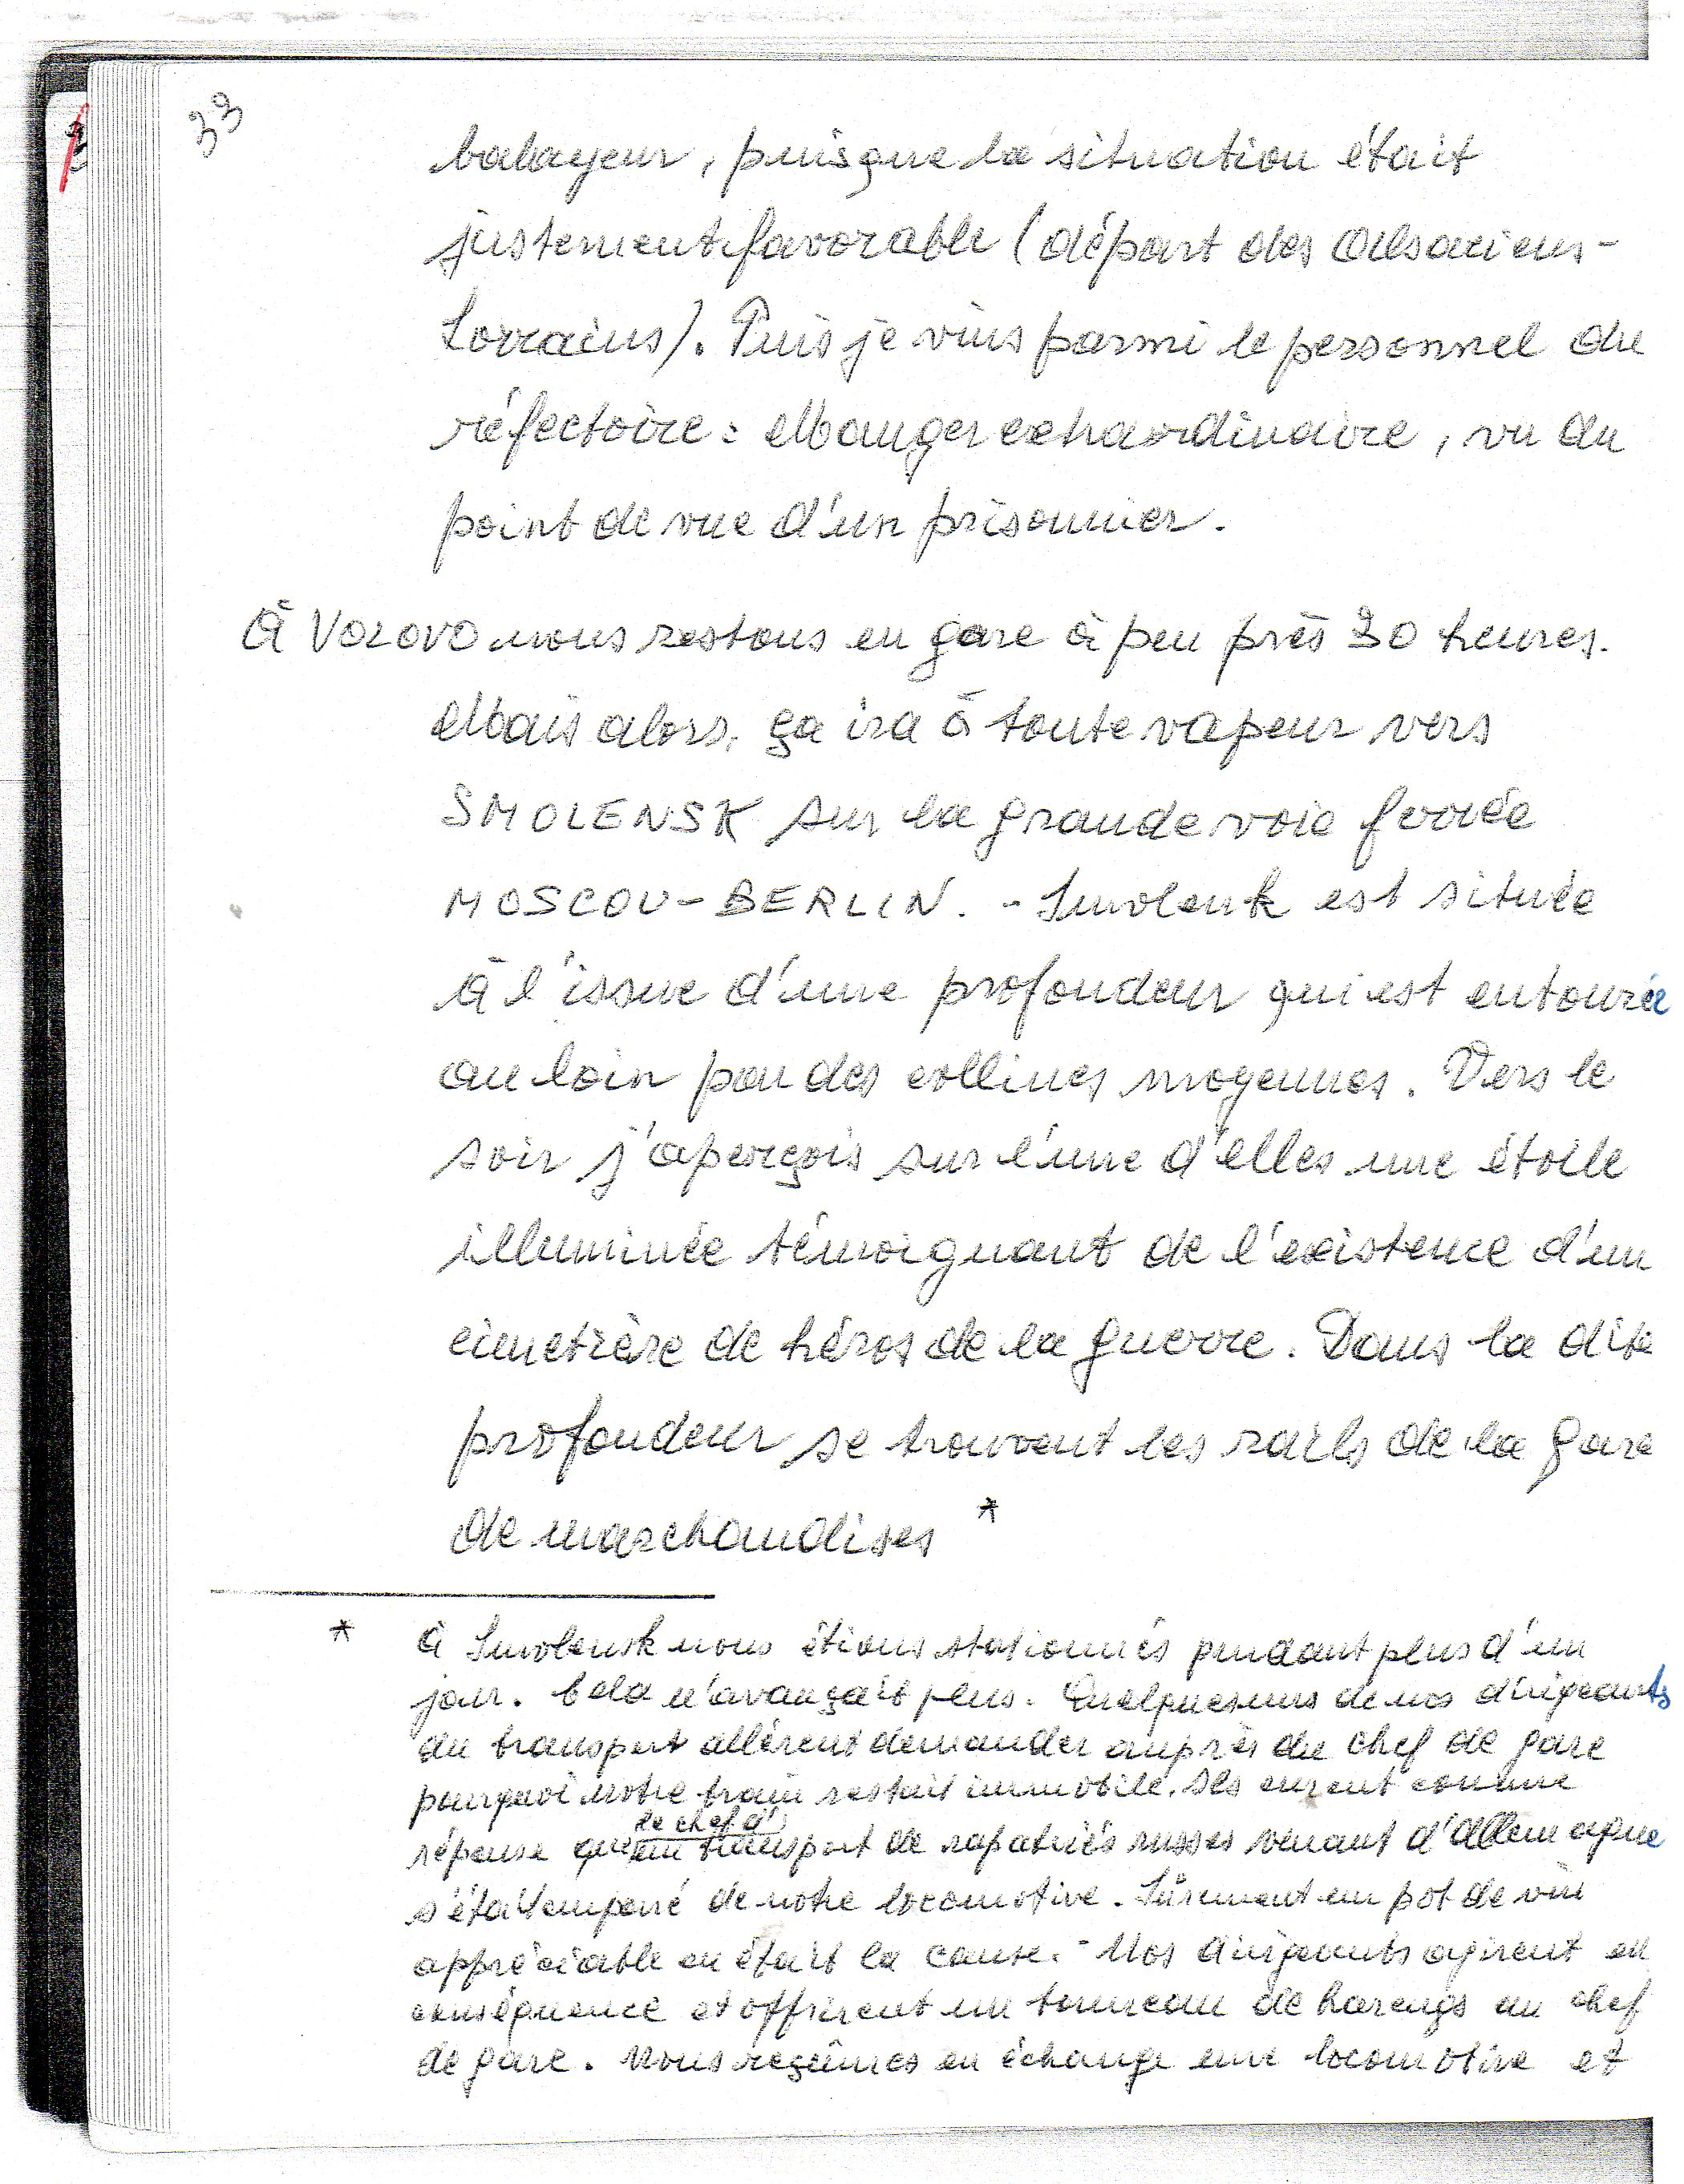 33
balayeur, puisque la situation était
justement favorable (départ des Alsaciens-
Lorrains). Puis je vins parmi le personnel du
réfectoire : Manger extraordinaire, vu du
point de vue d'un prisonnier.
À VOLOVO nous restons en gare à peu près 30 heures.
Mais alors, ça ira à toute vapeur vers
SMOLENSK sur la grande voie ferrée
MOSCOU-BERLIN. - Smolenk est située
à l'issue d'une profondeur qui est entourée
au loin par des collines moyennes. Vers le
soir j'aperçois sur l'une d'elles une étoile
illuminée témoignant de l'existence d'un
cimetière de héros de la guerre. Dans la dite
profondeur se trouvent les rails de la gare
de marchandises *
* À Smolensk nous étions stationnés pendant plus d'un
jour. Cela n'avançait plus. Quelques uns de nos dirigeants
du transport allèrent demander auprès du chef de gare
pourquoi notre train restait immobile. Ils eurent comme
le chef d'
réponse que un transport de rapatriés russes venant d'Allemagne
s'était emparé de notre locomotive. Sûrement un pot de vin
appréciable en était la cause. - Nos dirigeants agirent en
conséquence et offrirent un tonneau de harengs au chef
de gare. Nous reçûmes en échange une locomotive et